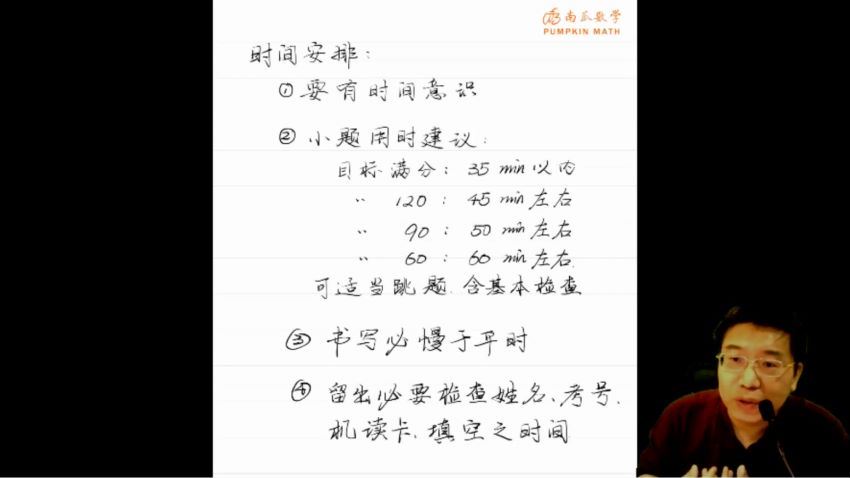 南瓜数学
PUMPKIN MATH
时间安排:
① 要有时间意识
② 小题用时建议:
目标满分: 35 min以内
〃 120 : 45 min左右
〃 90 : 50 min左右
〃 60 : 60 min左右
可适当跳题.含基本检查
③ 书写必慢于平时
④ 留出必要检查姓名、考号、
机读卡、填空之时间